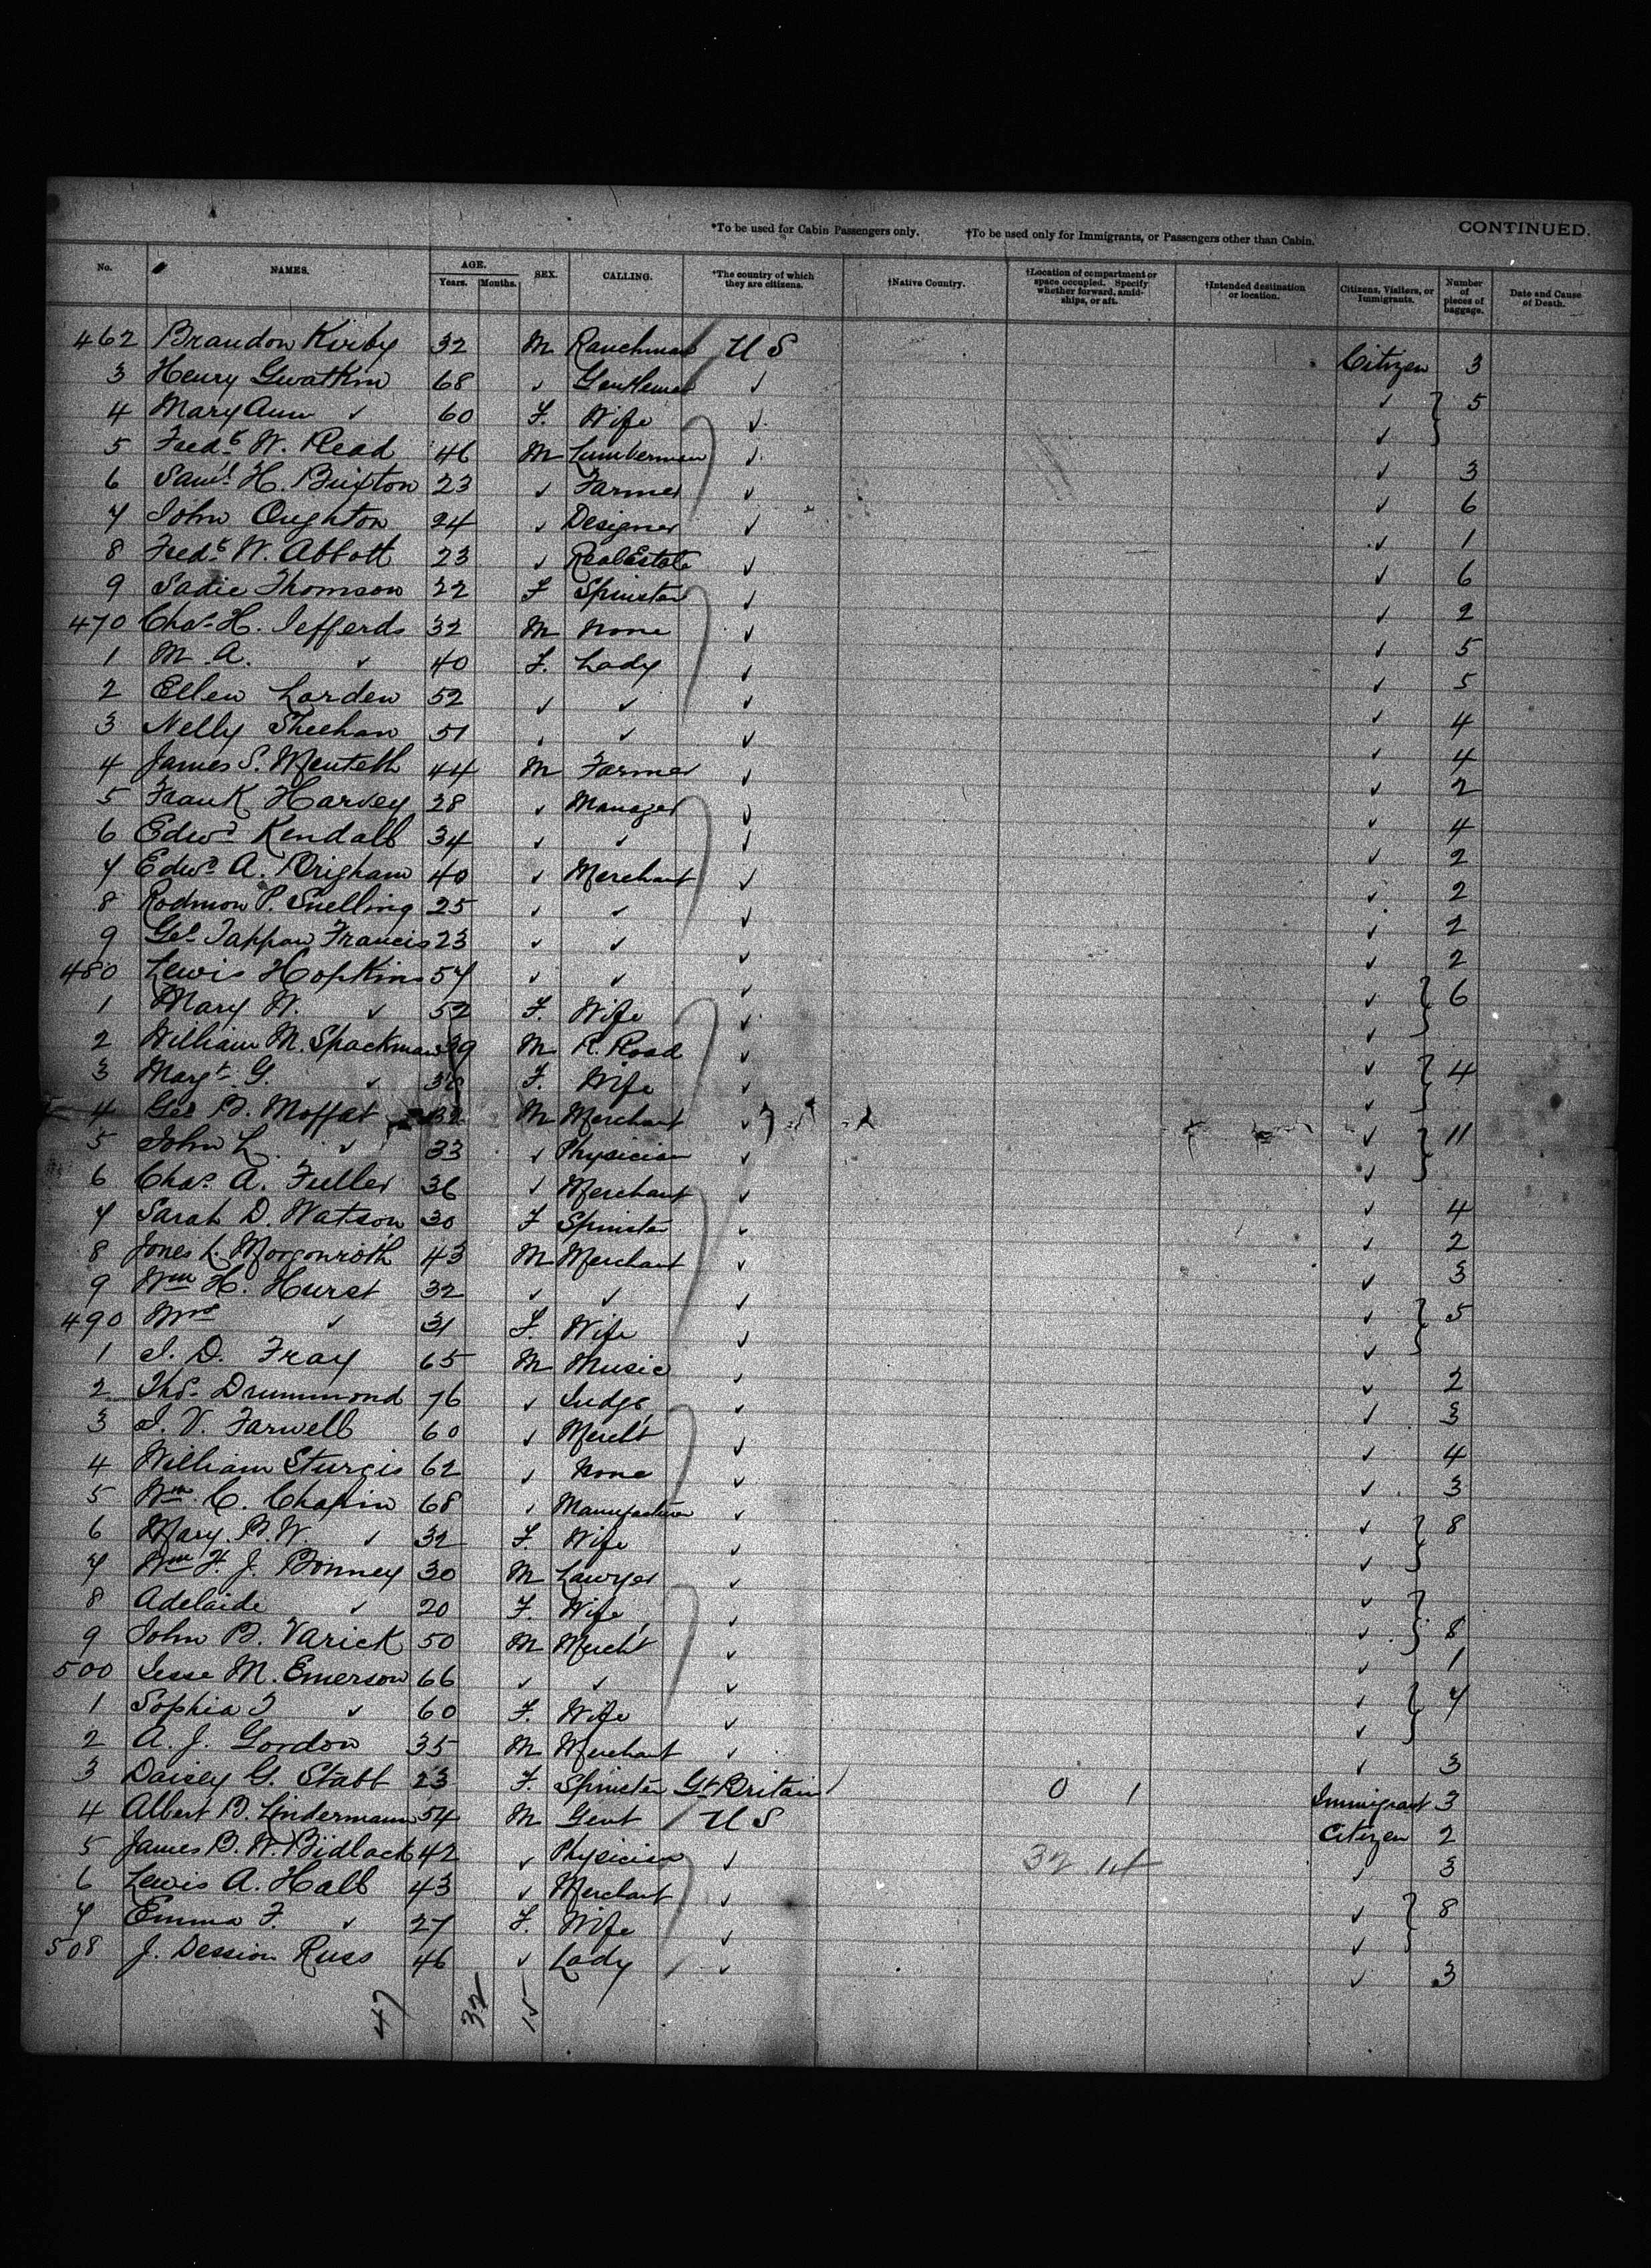 CONTINUED.
*To be used for Cabin Passengers only. †To be used only for Immigrants, or Passengers other than Cabin.
No. NAMES. AGE. Years. Months. SEX. CALLING. *The country of which they are citizens. †Native Country. †Location of compartment or space occupied. Specify whether forward, amidships, or aft. †Intended destination or location. Citizens, Visitors, or Immigrants. Number of pieces of baggage. Date and Cause of Death.
462 Brandon Kirby 32 M Ranchman U S Citizen 3
3 Henry Gwatkin 68 ✓ Gentleman ✓ ✓ } 5
4 Mary Ann ✓ 60 F. Wife ✓ ✓
5 Fredk W. Read 46 M Lumberman ✓ ✓ 3
6 Saml H. Buxton 23 ✓ Farmer ✓ ✓ 6
7 John Oughton 24 ✓ Designer ✓ ✓ 1
8 Fredk W. Abbott 23 ✓ Real Estate ✓ ✓ 6
9 Sadie Thomson 22 F Spinster ✓ ✓ 2
470 Chas. H. Jefferds 32 M None ✓ ✓ 5
1 M. A. ✓ 40 F. Lady ✓ ✓ 5
2 Ellen Larden 52 ✓ ✓ ✓ ✓ 4
3 Nelly Sheehan 51 ✓ ✓ ✓ ✓ 4
4 James S. Menteth 44 M Farmer ✓ ✓ 2
5 Frank Harvey 28 ✓ Manager ✓ ✓ 4
6 Edwd Kendall 34 ✓ ✓ ✓ ✓ 2
7 Edwd A. Brigham 40 ✓ Merchant ✓ ✓ 2
8 Rodmon P. Snelling 25 ✓ ✓ ✓ ✓ 2
9 Geo Tappan Francis 23 ✓ ✓ ✓ ✓ 2
480 Lewis Hopkins 57 ✓ ✓ ✓ ✓ } 6
1 Mary W. ✓ 52 F. Wife ✓ ✓
2 William M. Spackman 39 M R. Road ✓ ✓ } 4
3 Margt G. ✓ F. Wife ✓ ✓
4 Geo B. Moffat 32 M Merchant ✓ ✓ } 11
5 John L. ✓ 33 ✓ Physician ✓ ✓
6 Chas. A. Fuller 36 ✓ Merchant ✓ ✓ 4
7 Sarah D. Watson 30 F Spinster ✓ ✓ 2
8 Jones L. Morgonroth 43 M Merchant ✓ ✓ 3
9 Wm H. Hurst 32 ✓ ✓ ✓ ✓ } 5
490 Mrs ✓ 31 F. Wife ✓ ✓
1 J. D. Fray 65 M Music ✓ ✓ 2
2 Thos. Drummond 76 ✓ Judge ✓ ✓ 3
3 J. V. Farwell 60 ✓ Mercht ✓ ✓ 4
4 William Sturgis 62 ✓ None ✓ ✓ 3
5 Wm. C. Chapin 68 ✓ Manufacturer ✓ ✓ } 8
6 Mary B. W. ✓ 32 F. Wife ✓ ✓
7 Wm F. J. Bonney 30 M Lawyer ✓ ✓ }
8 Adelaide ✓ 20 F. Wife ✓ ✓ 8
9 John B. Varick 50 M Mercht ✓ ✓ 1
500 Jesse M. Emerson 66 ✓ ✓ ✓ ✓ } 7
1 Sophia T ✓ 60 F. Wife ✓ ✓
2 A. J. Gordon 35 M Merchant ✓ ✓ 3
3 Daisey G. Stabb 23 F. Spinster Gt Britain 0 1 Immigrant 3
4 Albert B. Lindermann 54 M Gent U S Citizen 2
5 James B. W. Bidlack 42 ✓ Physician ✓ ✓ 3
6 Lewis A. Hall 43 ✓ Merchant ✓ ✓ } 8
7 Emma F. ✓ 27 F. Wife ✓ ✓
508 J. Dession Russ 46 ✓ Lady ✓ ✓ 3
47 32 15